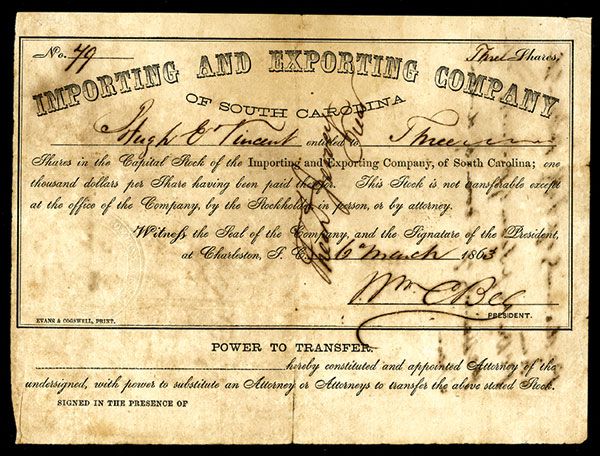 No. 79 Three Shares,
IMPORTING AND EXPORTING COMPANY
OF SOUTH CAROLINA
Hugh E. Vincent entitled to Three
Shares in the Capital Stock of the Importing and Exporting Company, of South Carolina; one
thousand dollars per Share having been paid therefor. This Stock is not transferable except
at the office of the Company, by the Stockholder, in person, or by attorney.
Witness the Seal of the Company, and the Signature of the President,
at Charleston, S. C. 6th March 1863
Wm. C. Bee
PRESIDENT.
EVANS & COGSWELL, PRINT.
POWER TO TRANSFER.
hereby constituted and appointed Attorney of the
undersigned, with power to substitute an Attorney or Attorneys to transfer the above stated Stock.
SIGNED IN THE PRESENCE OF